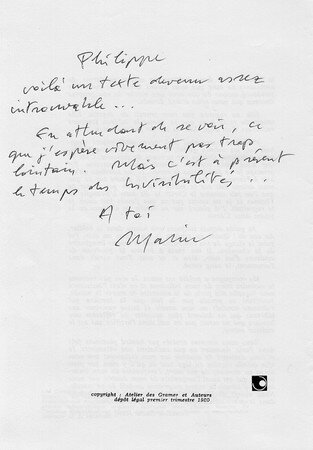 Philippe
voilà un texte devenu assez
introuvable...
En attendant de se voir, ce
que j'espère vivement pas trop
lointain. Mais c'est à présent
le temps des invisibilités..
A toi
copyright : Atelier des Gramer et Auteurs
dépôt légal premier trimestre 1980